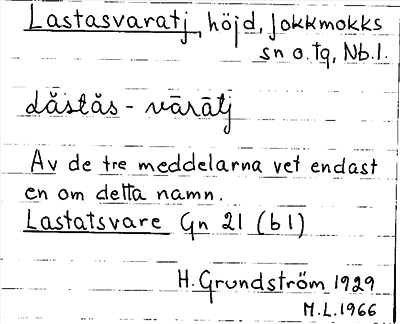 Lastasvaratj, höjd, Jokkmokks
sn o. tg, Nb. l.
dǎstǎs - vārātj
Av de tre meddelarna vet endast
en om detta namn.
Lastatsvare Gn 21 (b1)
H. Grundström 1929
M.L. 1966